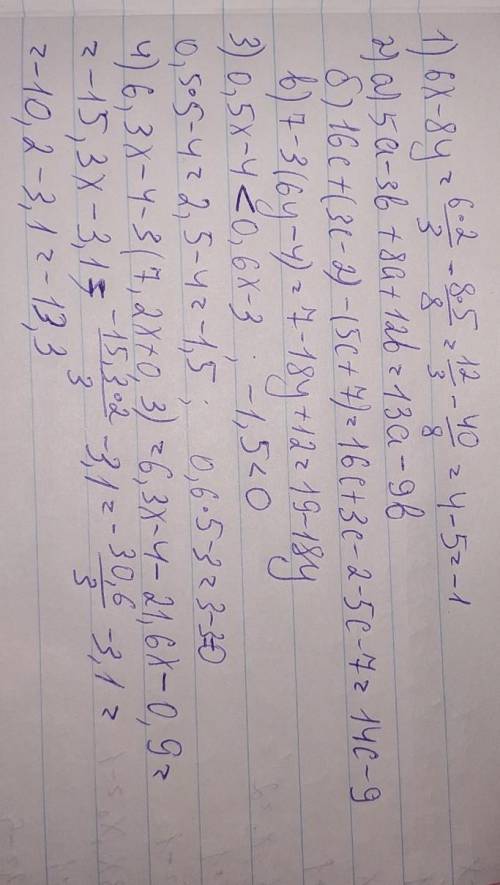 1) 6x-8y = 6·2/3 - 8·5/8 = 12/3 - 40/8 = 4-5=-1
2) а) 5a-3b+8a+12b=13a-9b
б) 16c+(3c-2)-(5c+7)=16c+3c-2-5c-7=14c-9
в) 7-3(6y-4)=7-18y+12=19-18y
3) 0,5x-4<0,6x-3; -1,5<0
0,5·5-4=2,5-4=-1,5; 0,6·5-3=3-3=0
4) 6,3x-4-3(7,2x+0,3)=6,3x-4-21,6x-0,9=
=-15,3x-3,1= -15,3·2/3 -3,1=- 30,6/3 -3,1=
=-10,2-3,1=-13,3